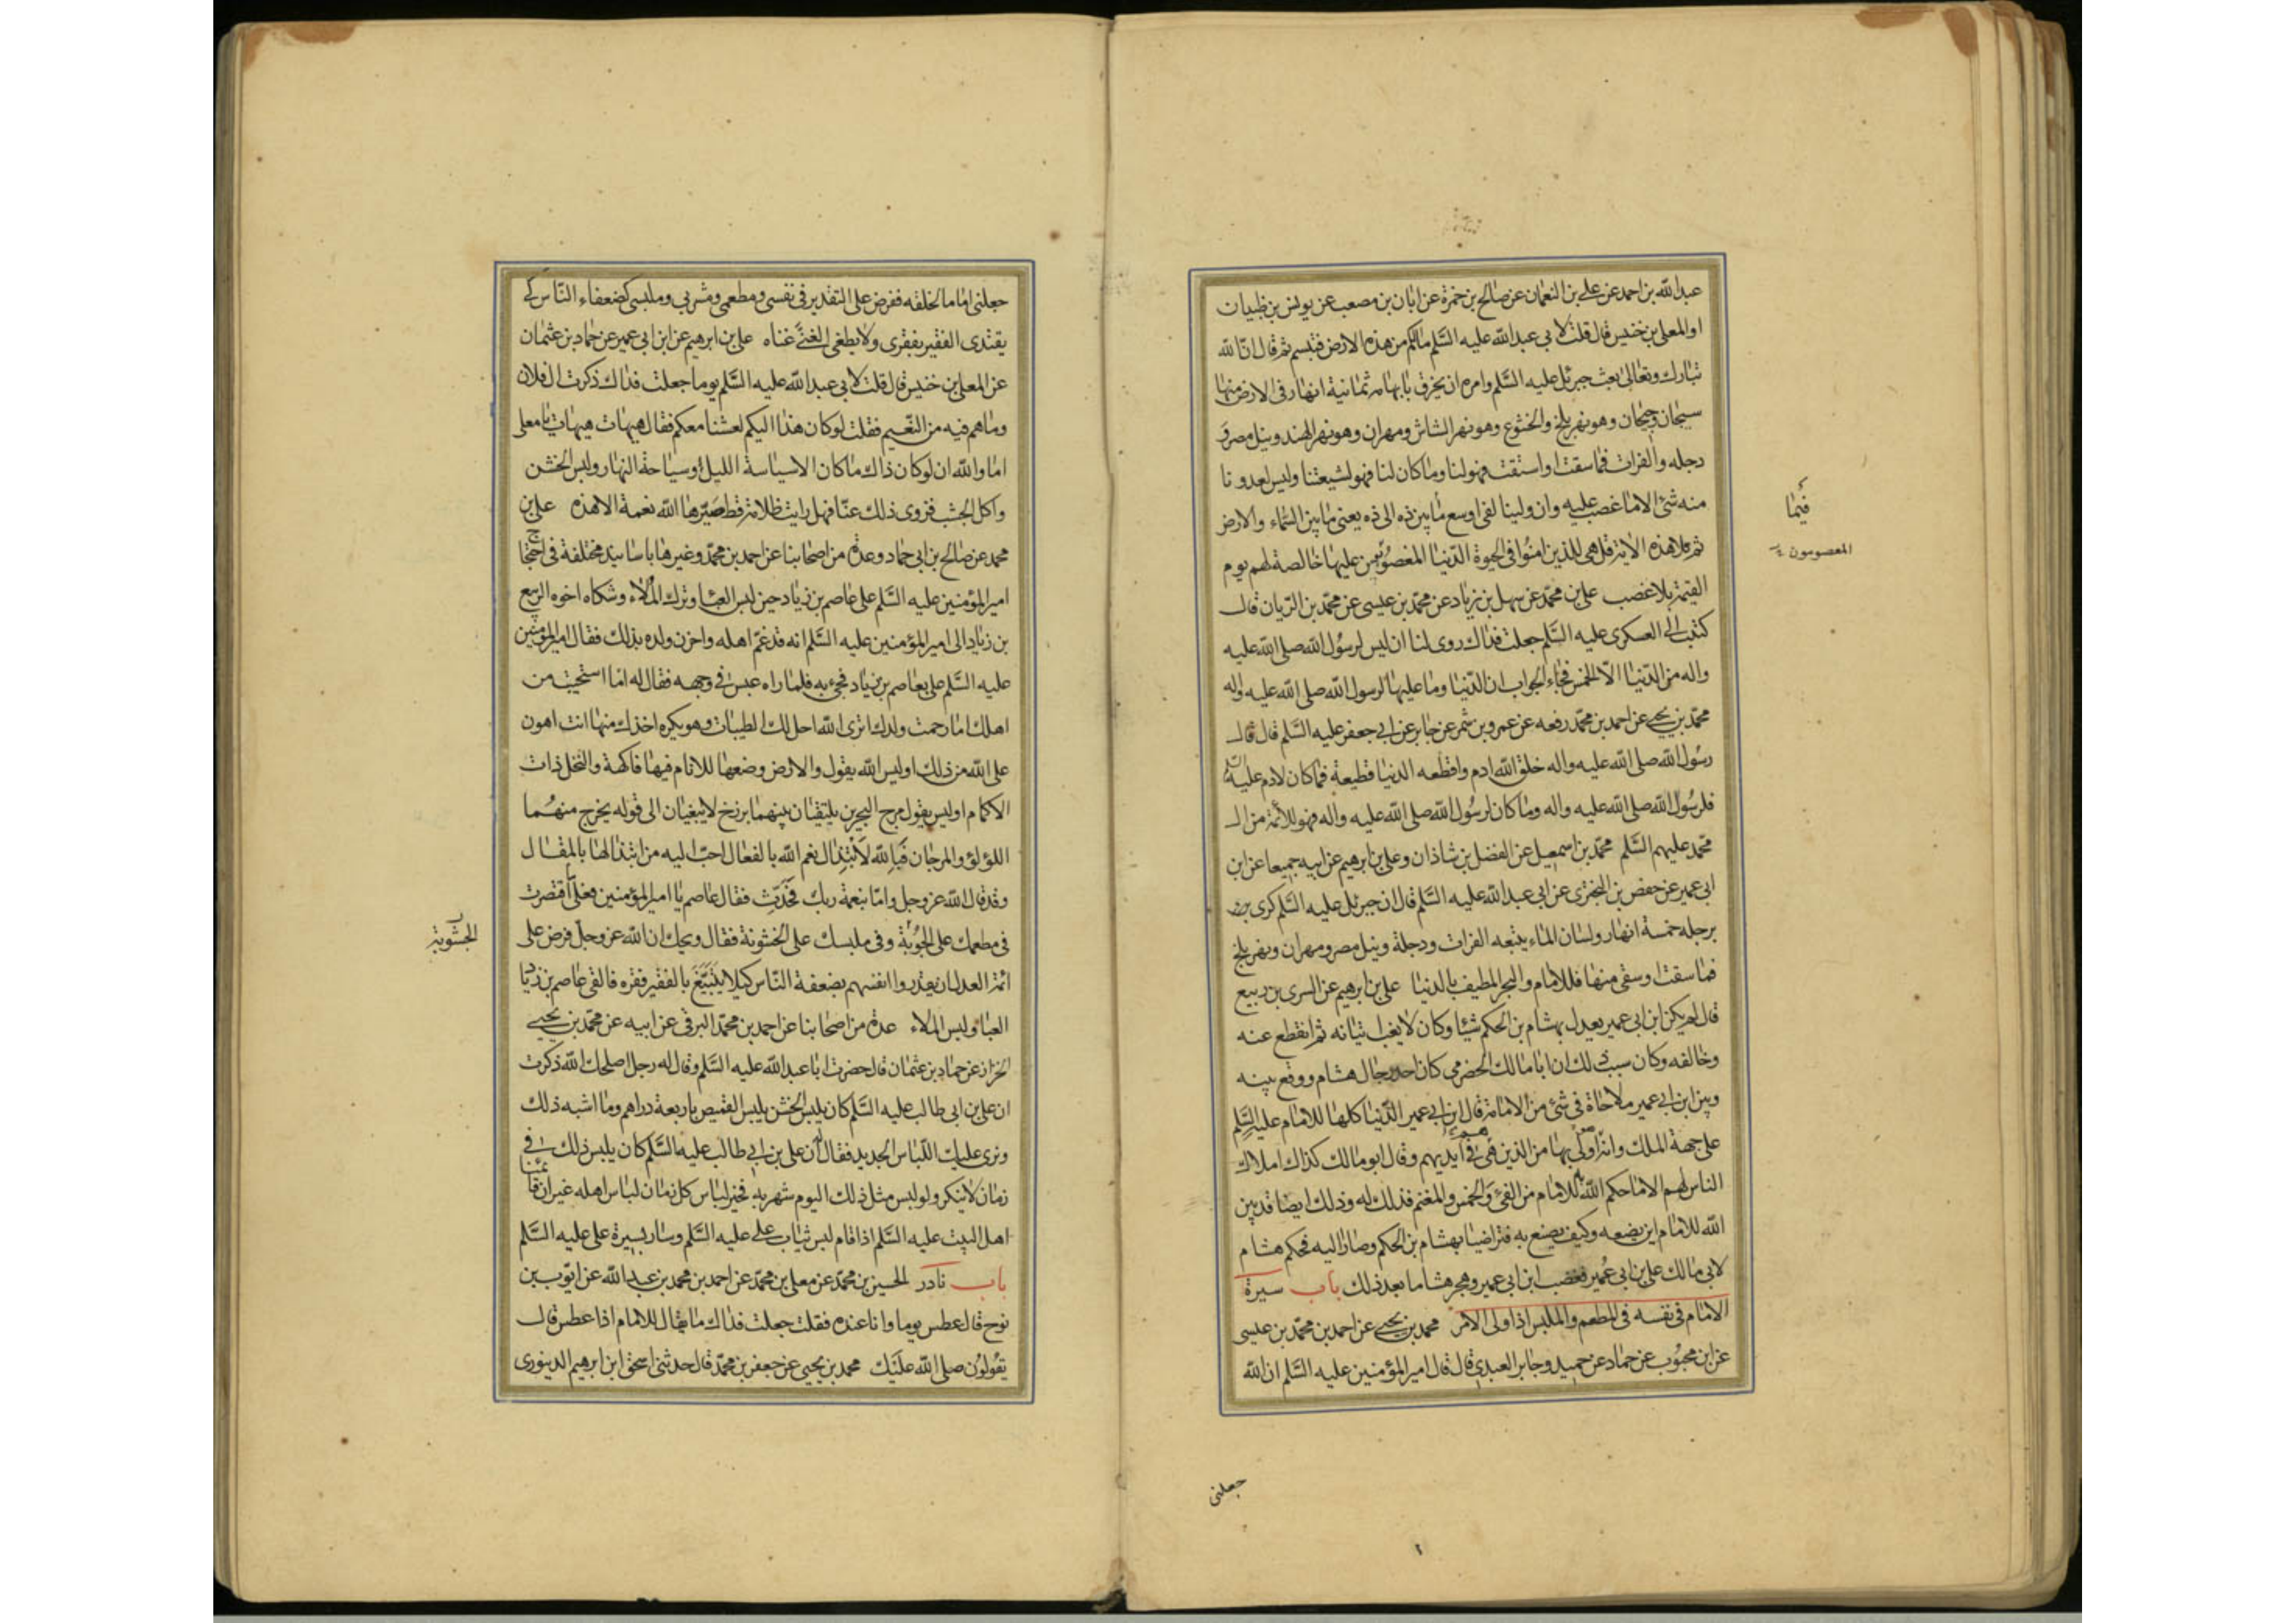 عبد الله بن احمد عن علي بن النعمان عن صالح بن حمزة عن ابان بن مصعب عن يونس بن ظبيان
او المعلى بن خنيس قال قلت لابى عبد الله عليه السلم مالكم من هذه الارض فتبسم ثم قال ان الله
تبارك وتعالى بعث جبرئل عليه السلم وامره ان يخرق بابهامه ثمانية انهار فى الارض منها
سيحان وجيحان وهو نهر بلخ والخشوع وهو نهر الشاش ومهران وهو نهر الهند ونيل مصر و
دجله والفرات فما سقت او استقت فهو لنا وما كان لنا فهو لشيعتنا وليس لعدونا
منه شئ الا ما غصب عليه وان ولينا لفى اوسع ما بين ذه الى ذه يعنى ما بين السماء والارض
فيما
ثم تلا هذه الاية قل هى للذين امنوا فى الحيوة الدنيا المغصوبين عليها خالصة لهم يوم
المغصوبون
القيمة بلا غصب علي بن محمد عن سهل بن زياد عن محمد بن عيسى عن محمد بن الريان قال
كتبت الى العسكرى عليه السلم جعلت فداك روى لنا ان ليس لرسول الله صلى الله عليه
واله من الدنيا الا الخمس فجاء الجواب ان الدنيا وما عليها لرسول الله صلى الله عليه واله
محمد بن يحيى عن احمد بن محمد رفعه عن عمرو بن شمر عن جابر عن ابى جعفر عليه السلم قال قال
رسول الله صلى الله عليه واله خلق الله ادم واقطعه الدنيا قطيعة فما كان لادم عليه السلم
فلرسول الله صلى الله عليه واله وما كان لرسول الله صلى الله عليه واله فهو للائمة من ال
محمد عليهم السلم محمد بن اسمعيل عن الفضل بن شاذان وعلى بن ابرهيم عن ابيه جميعا عن ابن
ابى عمير عن حفص بن البخترى عن ابى عبد الله عليه السلم قال ان جبرئل عليه السلم كرى
برجله خمسة انهار ولسان الماء يتبعه الفرات ودجلة ونيل مصر ومهران ونهر بلخ
فما سقت او سقى منها فللامام والبحر المطيف بالدنيا على بن ابرهيم عن السرى بن ربيع
قال لم يكن ابن ابى عمير يعدل بهشام بن الحكم شيئا وكان لا يغب اتيانه ثم انقطع عنه
وخالفه وكان سبب ذلك ان ابا مالك الحضرمى كان احد رجال هشام ووقع بينه
وبين ابن ابى عمير ملاحاة فى شئ من الامامة قال ابن ابى عمير الدنيا كلها للامام عليه السلم
على جهة الملك وانه اولى بها من الذين هى فى ايديهم وقال ابو مالك كذاك املاك
الناس لهم الا ما حكم الله به للامام من الفئ والخمس والمغنم فذلك له وذلك ايضا قد بين
الله للامام اين يضعه وكيف يصنع به فتراضيا بهشام بن الحكم وصارا اليه فحكم هشام
لابى مالك على ابن ابى عمير فغضب ابن ابى عمير وهجر هشاما بعد ذلك باب سيرة
الامام فى نفسه فى المطعم والملبس اذا ولى الامر محمد بن يحيى عن احمد بن محمد بن عيسى
عن ابن محبوب عن حماد عن حميد وجابر العبدى قال قال امير المؤمنين عليه السلم ان الله
جعلنى
جعلنى اماما لخلقه ففرض على التقدير فى نفسى ومطعمى ومشربى وملبسى كضعفاء الناس كى
يقتدى الفقير بفقرى ولا يطغى الغنى غناه على بن ابرهيم عن ابن ابى عمير عن حماد بن عثمان
عن المعلى بن خنيس قال قلت لابى عبد الله عليه السلم يوما جعلت فداك ذكرت ال فلان
وما هم فيه من النعيم فقلت لو كان هذا اليكم لعشنا معكم فقال هيهات هيهات يا معلى
اما والله ان لو كان ذاك ما كان الا سياسة الليل وسياحة النهار ولبس الخشن
واكل الجشب فزوى ذلك عنا فهل رايت ظلامة قط صيرها الله نعمة الا هذه على بن
محمد عن صالح بن ابى حماد وعدة من اصحابنا عن احمد بن محمد وغيرها باسانيد مختلفة فى احتجاج
امير المؤمنين عليه السلم على عاصم بن زياد حين لبس العبا وترك الملاء وشكاه اخوه الربيع
بن زياد الى امير المؤمنين عليه السلم انه قد غم اهله واحزن ولده بذلك فقال امير المؤمنين
عليه السلم على بعاصم بن زياد فجىء به فلما راه عبس فى وجهه فقال له اما استحييت من
اهلك اما رحمت ولدك اترى الله احل لك الطيبات وهو يكره اخذك منها انت اهون
على الله من ذلك اوليس الله يقول والارض وضعها للانام فيها فاكهة والنخل ذات
الاكمام اوليس يقول مرج البحرين يلتقيان بينهما برزخ لا يبغيان الى قوله يخرج منهما
اللؤلؤ والمرجان فبالله لابتذال نعم الله بالفعال احب اليه من ابتذالها بالمقال
وقد قال الله عز وجل واما بنعمة ربك فحدث فقال عاصم يا امير المؤمنين فعلى ما اقتصرت
فى مطعمك على الجشوبة وفى ملبسك على الخشونة فقال ويحك ان الله عز وجل فرض على
الجشوبة
ائمة العدل ان يقدروا انفسهم بضعفة الناس كيلا يتبيغ بالفقير فقره فالقى عاصم بن زياد
العبا ولبس الملاء عدة من اصحابنا عن احمد بن محمد البرقى عن ابيه عن محمد بن يحيى
الخزاز عن حماد بن عثمان قال حضرت ابا عبد الله عليه السلم وقال له رجل اصلحك الله ذكرت
ان على بن ابى طالب عليه السلم كان يلبس الخشن يلبس القميص باربعة دراهم وما اشبه ذلك
ونرى عليك اللباس الجديد فقال له ان على بن ابى طالب عليه السلم كان يلبس ذلك فى
زمان لا ينكر ولو لبس مثل ذلك اليوم شهر به فخير لباس كل زمان لباس اهله غير ان قائمنا
اهل البيت عليه السلم اذا قام لبس ثياب على عليه السلم وسار بسيرة على عليه السلم
باب نادر الحسين بن محمد عن معلى بن محمد عن احمد بن محمد بن عبد الله عن ايوب بن
نوح قال عطس يوما وانا عنده فقلت جعلت فداك ما يقال للامام اذا عطس قال
يقولون صلى الله عليك محمد بن يحيى عن جعفر بن محمد قال حدثنى اسحق ابن ابرهيم الدينورى